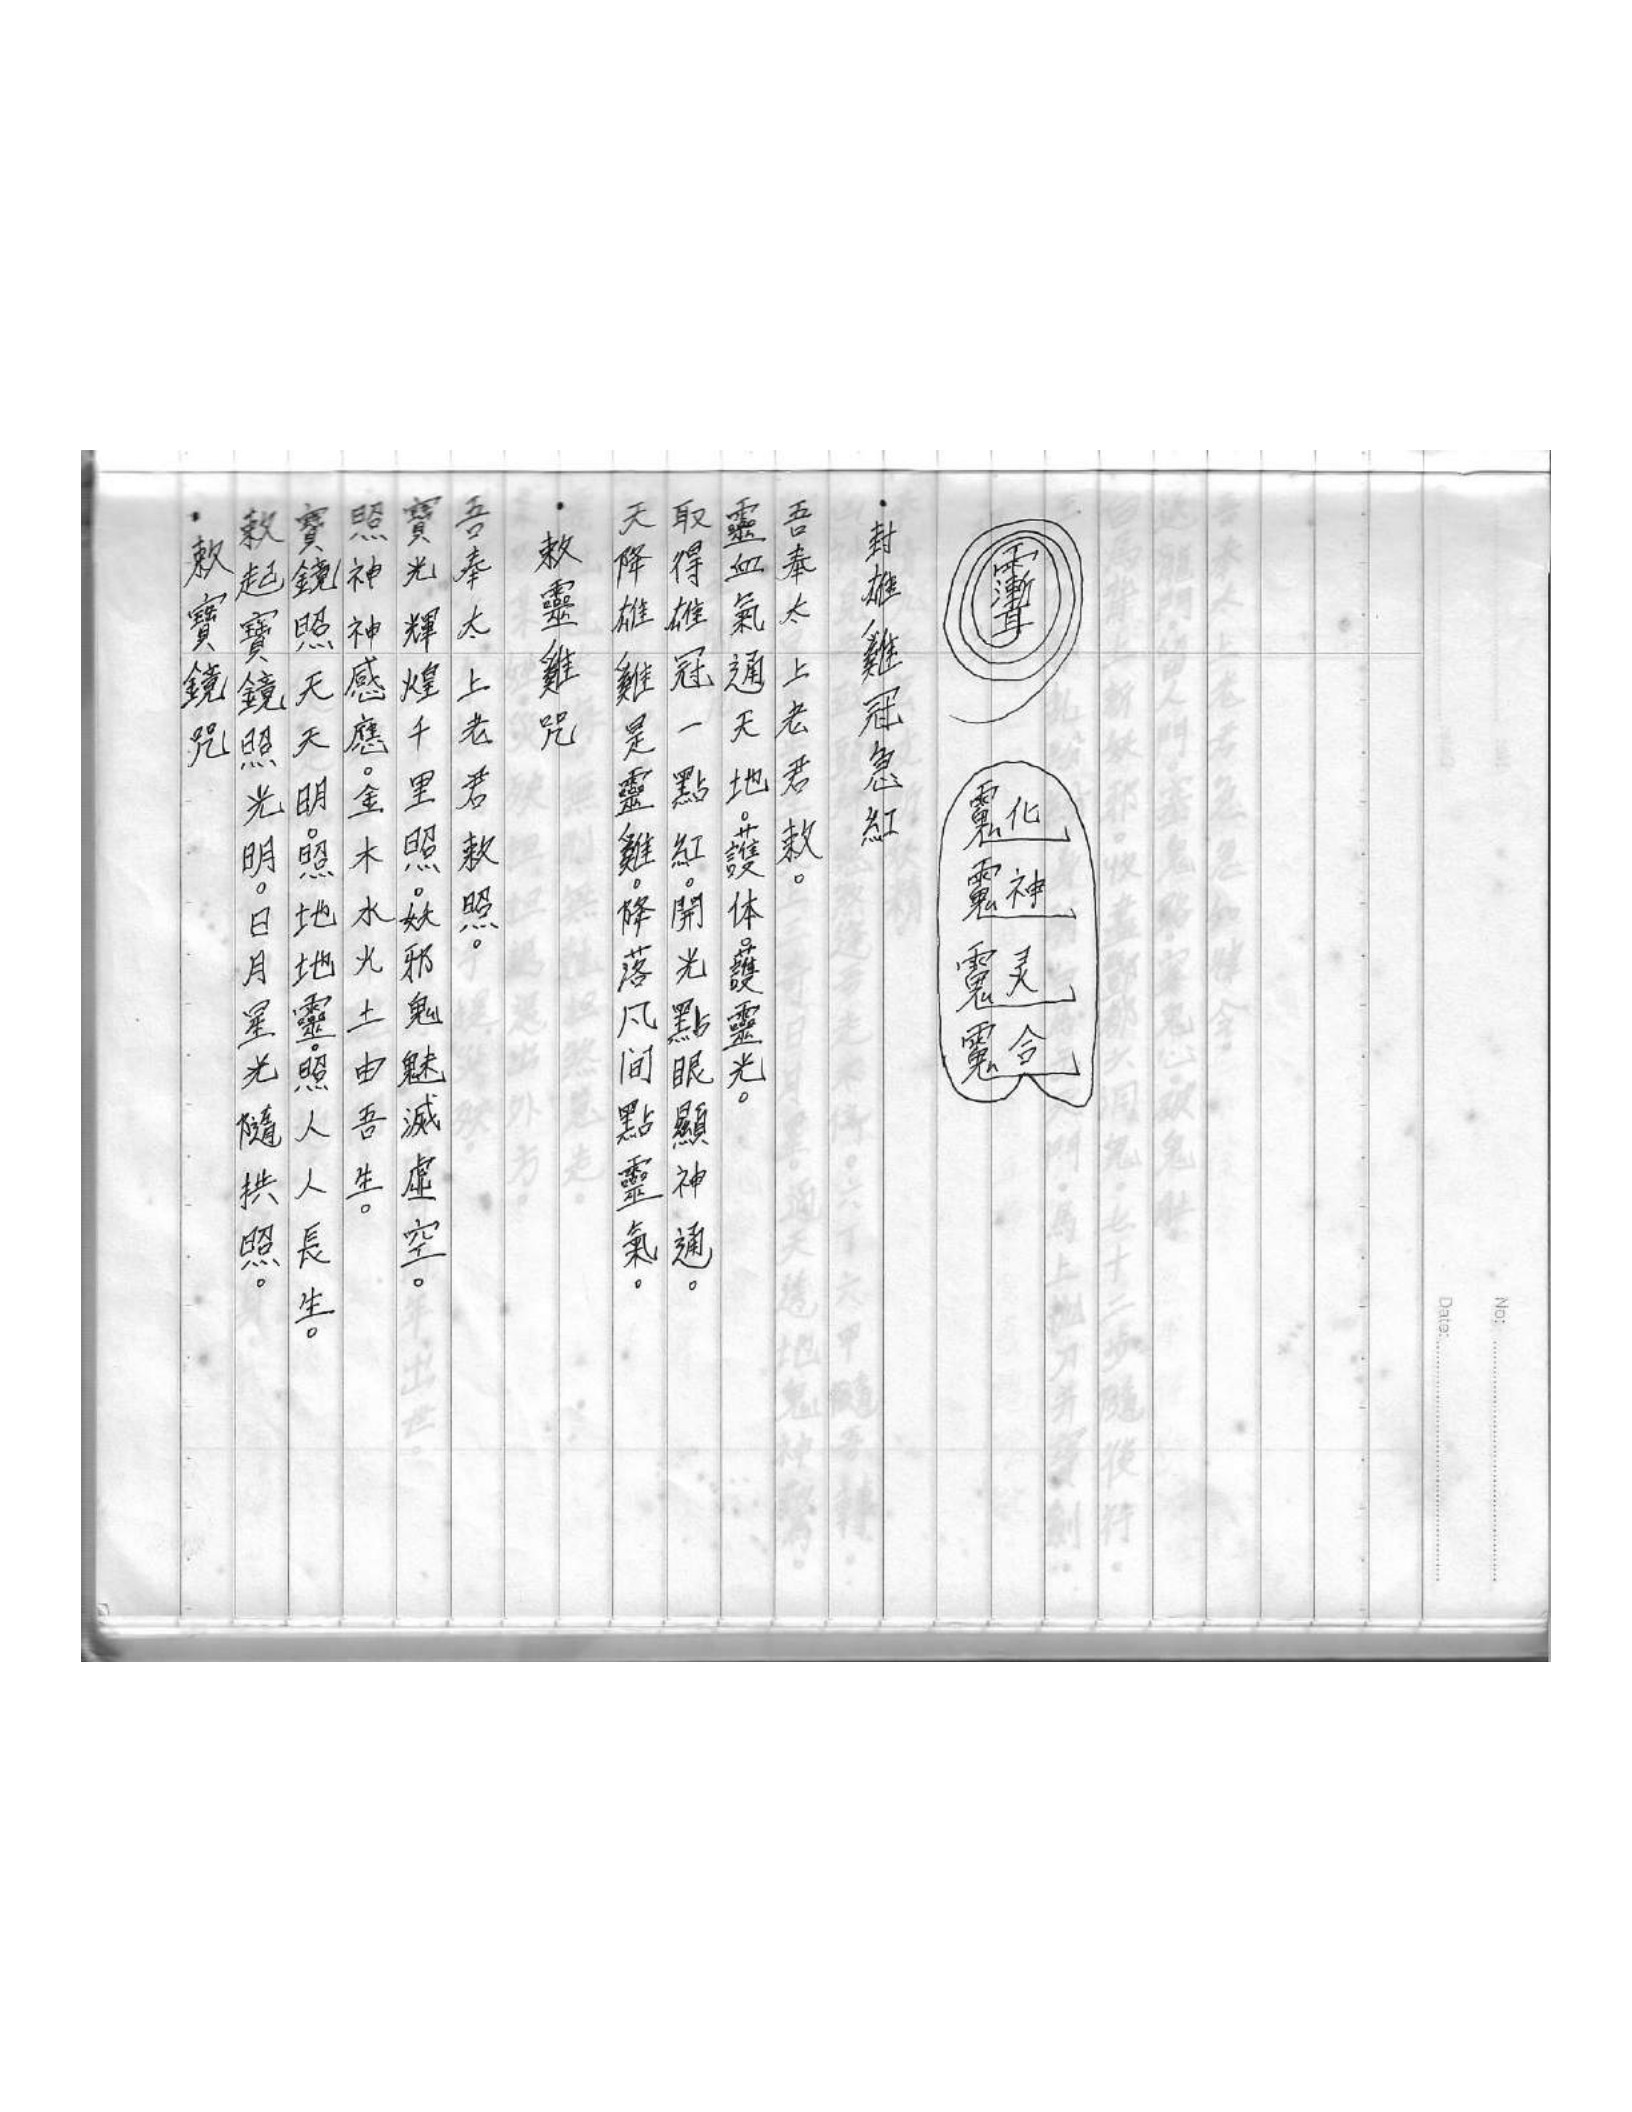 • 敕寶鏡咒
敕起寶鏡照光明。日月星光隨拱照。
寶鏡照天天明。照地地靈。照人人長生。
照神神感應。金木水火土由吾生。
寶光輝煌千里照。妖邪鬼魅滅虛空。
吾奉太上老君敕照。
• 敕靈雞咒
天降雄雞是靈雞。降落凡间點靈氣。
取得雄冠一點紅。開光點眼顯神通。
靈血氣通天地。護体。護靈光。
吾奉太上老君敕。
• 封雄雞冠急紅
化
神
灵
合
Date:
No: